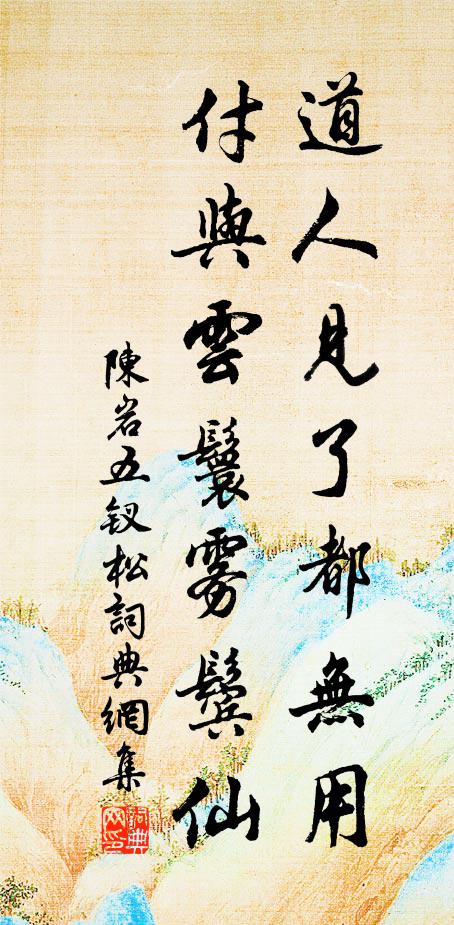 道人見了都無用
付與雲鬟雾鬓仙
陳岩五钗松詞典網集
詞典
网印